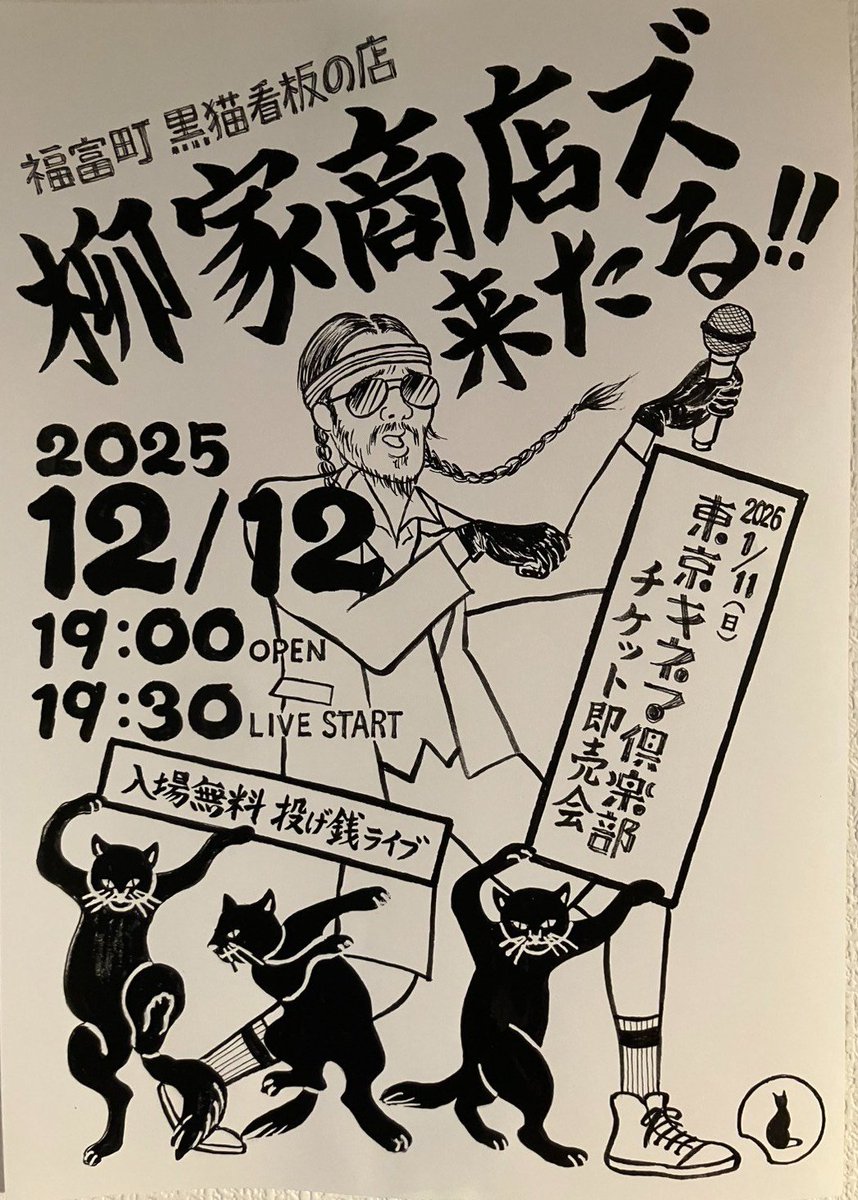 福富町 黒猫看板の店
柳家商店ズ
来たる!!
2025
12/12
19:00 OPEN
19:30 LIVE START
2026
1/11(日)
東京キネマ倶楽部
チケット即売会
入場無料 投げ銭ライブ